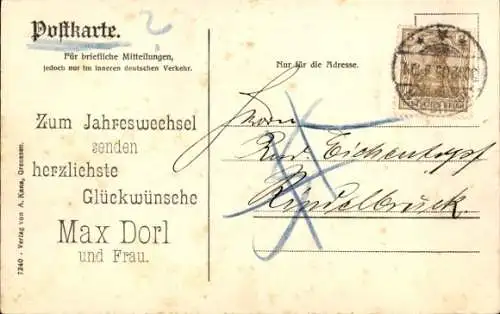 Postkarte.
2
Für briefliche Mitteilungen,
jedoch nur im inneren deutschen Verkehr.
Nur für die Adresse.
Zum Jahreswechsel
senden
herzlichste
Glückwünsche
Max Dorl
und Frau.
Herrn
Eichentopf
Kindelbrück.
7240 - Verlag von A. Kans, Greussen.